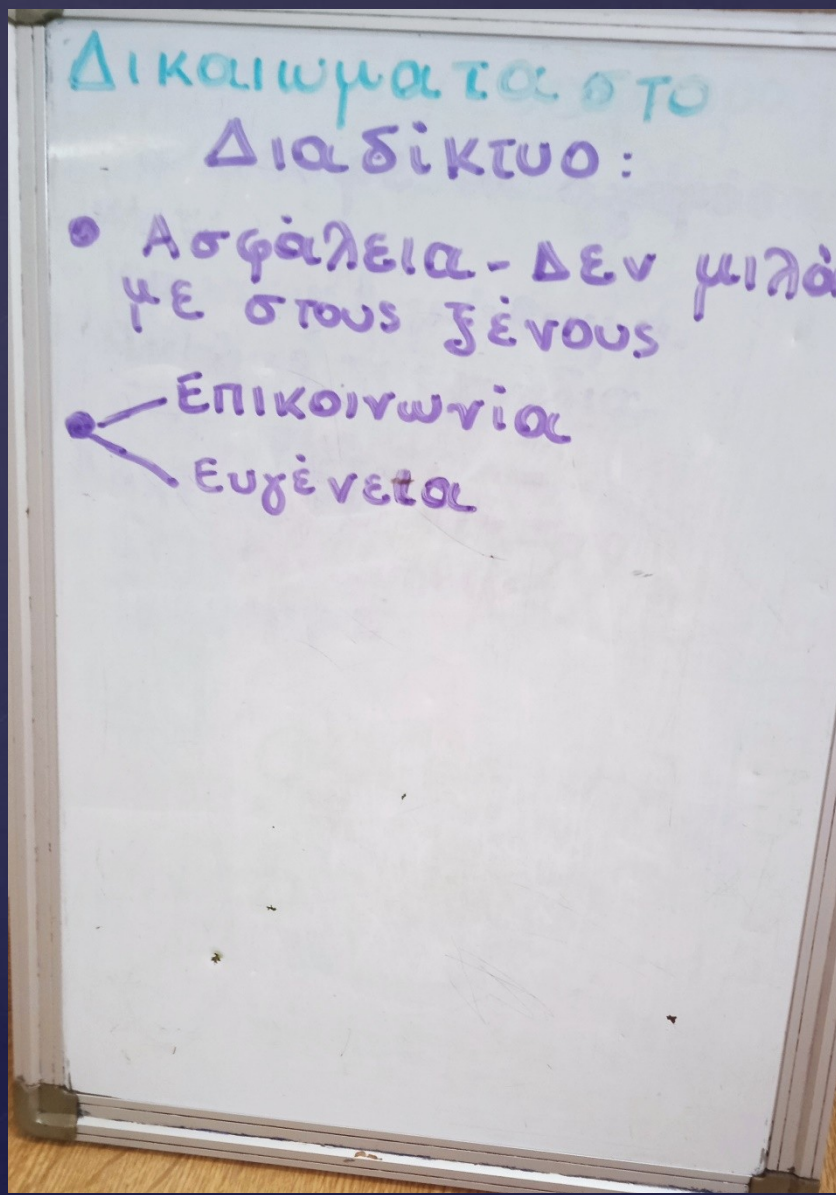 Δικαιωματα στο
Διαδίκτυο:
• Ασφάλεια - Δεν μιλά
με στους ξένους
Επικοινωνία
Ευγένεια